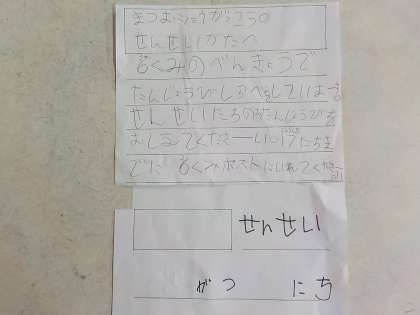 まつおショウがっこうの
せんせいがたへ
るくみのべんきょうで
たんじょうびしらべをしています
せんせいたちのおたんじょうびを
おしえてください。17にちま
でに るくみポストにいれてください
せんせい
がつ にち